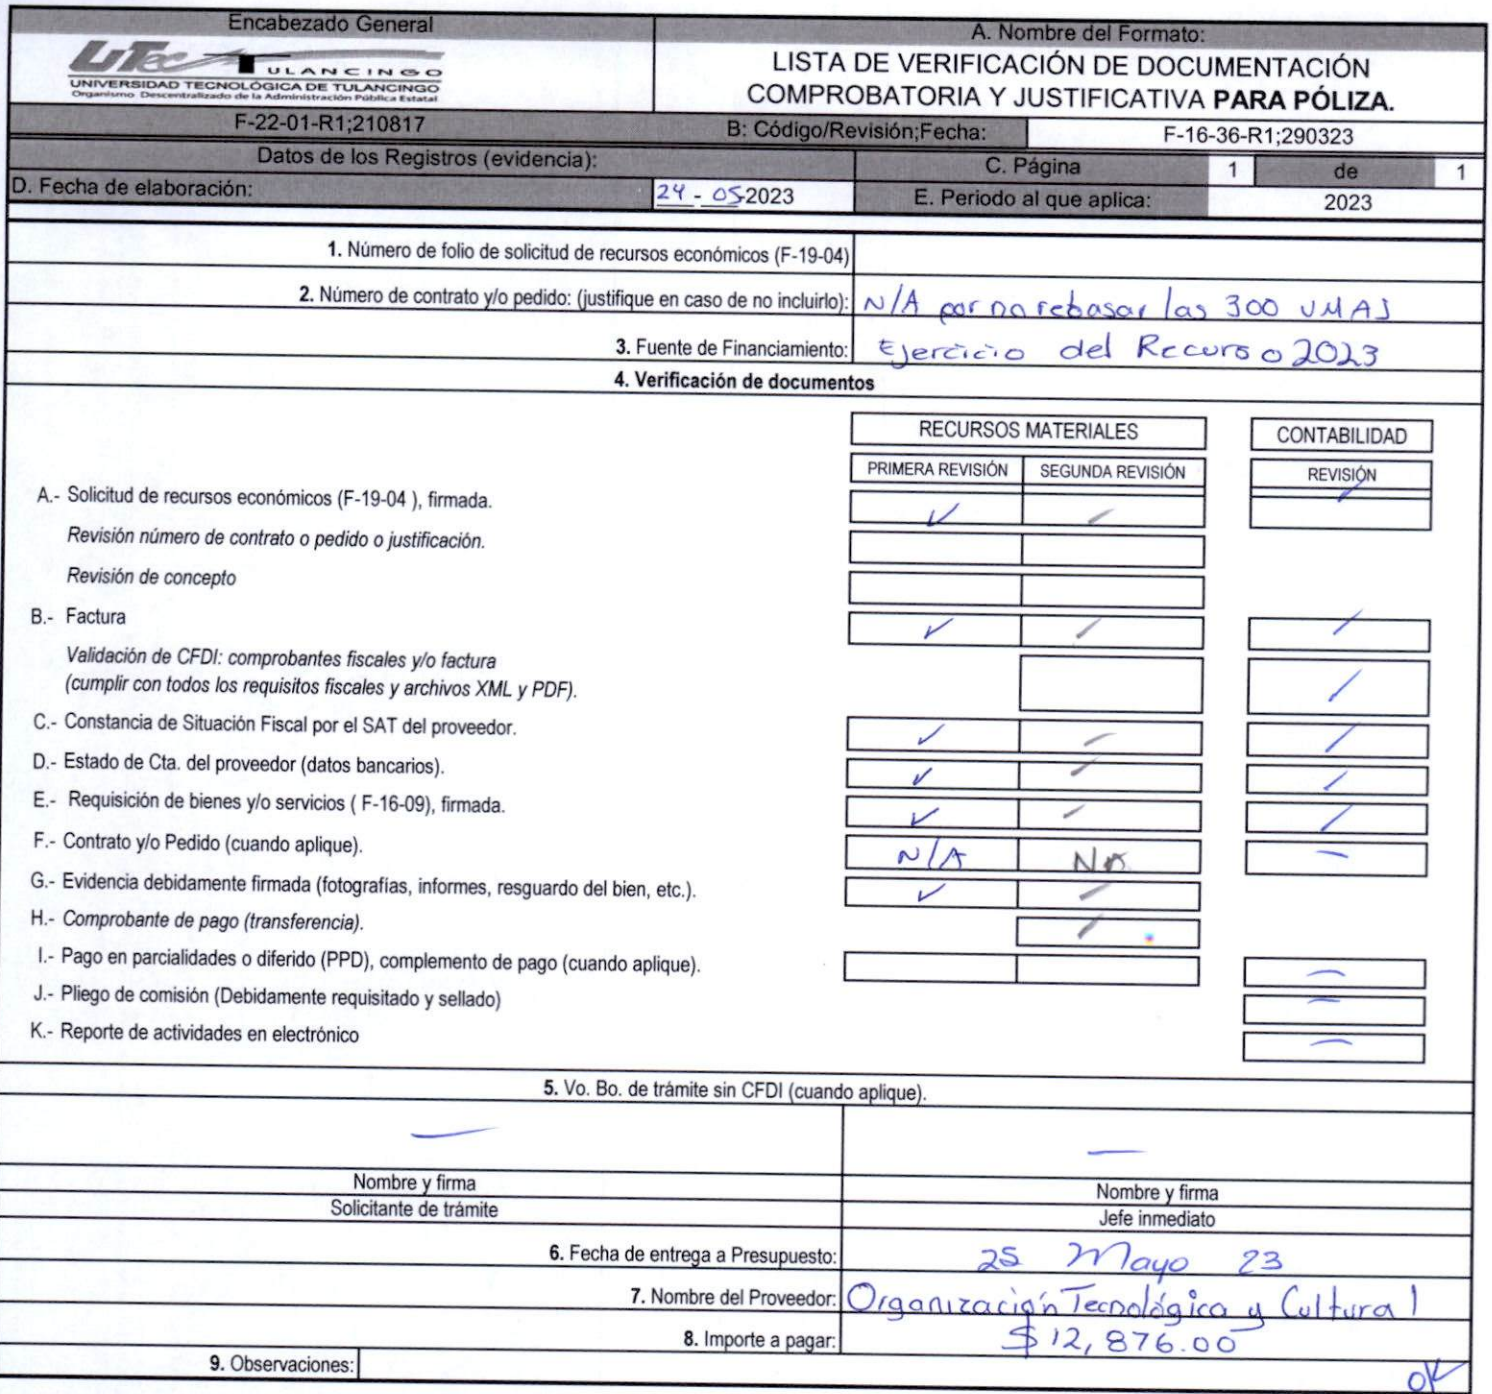 Encabezado General
A. Nombre del Formato:
UTec TULANCINGO
UNIVERSIDAD TECNOLÓGICA DE TULANCINGO
Organismo Descentralizado de la Administración Pública Estatal
LISTA DE VERIFICACIÓN DE DOCUMENTACIÓN
COMPROBATORIA Y JUSTIFICATIVA PARA PÓLIZA.
F-22-01-R1;210817
B: Código/Revisión;Fecha:
F-16-36-R1;290323
Datos de los Registros (evidencia):
C. Página 1 de 1
D. Fecha de elaboración: 24 - 05-2023
E. Periodo al que aplica: 2023
1. Número de folio de solicitud de recursos económicos (F-19-04)
2. Número de contrato y/o pedido: (justifique en caso de no incluirlo): N/A por no rebasar las 300 UMAS
3. Fuente de Financiamiento: Ejercicio del Recurso 2023
4. Verificación de documentos
RECURSOS MATERIALES
CONTABILIDAD
PRIMERA REVISIÓN
SEGUNDA REVISIÓN
REVISIÓN
A.- Solicitud de recursos económicos (F-19-04 ), firmada. ✓ ✓ ✓
Revisión número de contrato o pedido o justificación.
Revisión de concepto
B.- Factura ✓ ✓ ✓
Validación de CFDI: comprobantes fiscales y/o factura
(cumplir con todos los requisitos fiscales y archivos XML y PDF). ✓
C.- Constancia de Situación Fiscal por el SAT del proveedor. ✓ ✓ ✓
D.- Estado de Cta. del proveedor (datos bancarios). ✓ ✓ ✓
E.- Requisición de bienes y/o servicios ( F-16-09), firmada. ✓ ✓ ✓
F.- Contrato y/o Pedido (cuando aplique). N/A NA —
G.- Evidencia debidamente firmada (fotografías, informes, resguardo del bien, etc.). ✓ ✓
H.- Comprobante de pago (transferencia). ✓
I.- Pago en parcialidades o diferido (PPD), complemento de pago (cuando aplique). —
J.- Pliego de comisión (Debidamente requisitado y sellado) —
K.- Reporte de actividades en electrónico —
5. Vo. Bo. de trámite sin CFDI (cuando aplique).
— —
Nombre y firma
Nombre y firma
Solicitante de trámite
Jefe inmediato
6. Fecha de entrega a Presupuesto: 25 Mayo 23
7. Nombre del Proveedor: Organización Tecnológica y Cultural
8. Importe a pagar: $12,876.00
9. Observaciones:
OK